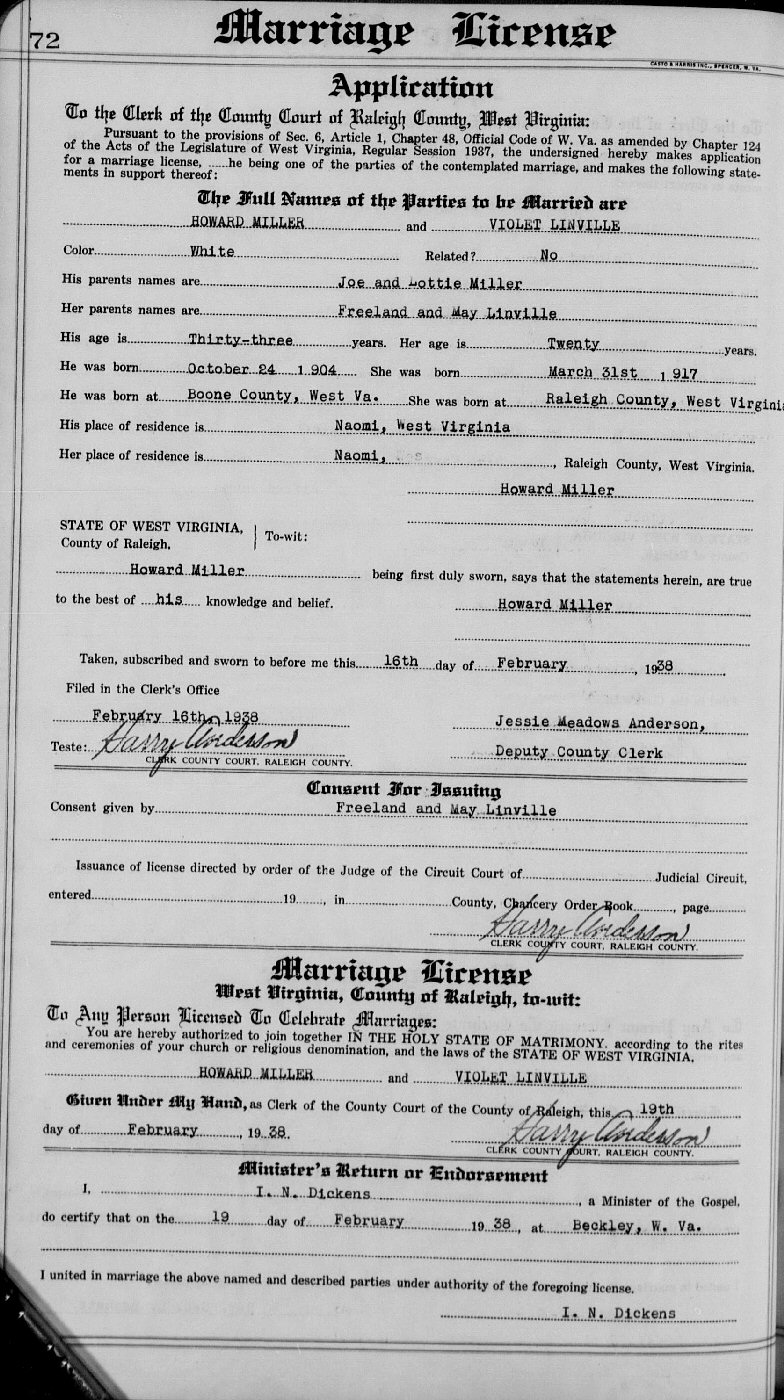 72
Marriage License
CASTO & HARRIS INC., SPENCER, W. VA.
Application
To the Clerk of the County Court of Raleigh County, West Virginia:
Pursuant to the provisions of Sec. 6, Article 1, Chapter 48, Official Code of W. Va. as amended by Chapter 124
of the Acts of the Legislature of West Virginia, Regular Session 1937, the undersigned hereby makes application
for a marriage license, ......he being one of the parties of the contemplated marriage, and makes the following state-
ments in support thereof:
The Full Names of the Parties to be Married are
HOWARD MILLER and VIOLET LINVILLE
Color White Related? No
His parents names are Joe and Lottie Miller
Her parents names are Freeland and May Linville
His age is Thirty-three years. Her age is Twenty years.
He was born October 24 1904 She was born March 31st 1917
He was born at Boone County, West Va. She was born at Raleigh County, West Virginia
His place of residence is Naomi, West Virginia
Her place of residence is Naomi, , Raleigh County, West Virginia.
Howard Miller
STATE OF WEST VIRGINIA,
County of Raleigh, To-wit:
Howard Miller being first duly sworn, says that the statements herein, are true
to the best of his knowledge and belief. Howard Miller
Taken, subscribed and sworn to before me this 16th day of February, 1938
Filed in the Clerk's Office
February 16th, 1938 Jessie Meadows Anderson,
Teste: Harry Anderson Deputy County Clerk
CLERK COUNTY COURT, RALEIGH COUNTY.
Consent For Issuing
Consent given by Freeland and May Linville
Issuance of license directed by order of the Judge of the Circuit Court of Judicial Circuit,
entered 19 , in County, Chancery Order Book , page
Harry Anderson
CLERK COUNTY COURT, RALEIGH COUNTY.
Marriage License
West Virginia, County of Raleigh, to-wit:
To Any Person Licensed To Celebrate Marriages:
You are hereby authorized to join together IN THE HOLY STATE OF MATRIMONY, according to the rites
and ceremonies of your church or religious denomination, and the laws of the STATE OF WEST VIRGINIA.
HOWARD MILLER and VIOLET LINVILLE
Given Under My Hand, as Clerk of the County Court of the County of Raleigh, this 19th
day of February, 1938. Harry Anderson
CLERK COUNTY COURT, RALEIGH COUNTY.
Minister's Return or Endorsement
I, I. N. Dickens, a Minister of the Gospel,
do certify that on the 19 day of February 1938, at Beckley, W. Va.
I united in marriage the above named and described parties under authority of the foregoing license.
I. N. Dickens